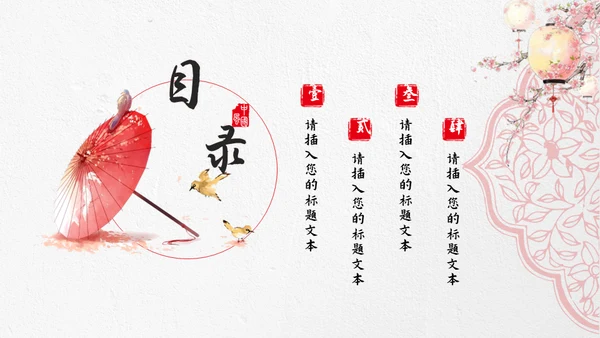 目录
中国风
壹
请插入您的标题文本
贰
请插入您的标题文本
叁
请插入您的标题文本
肆
请插入您的标题文本